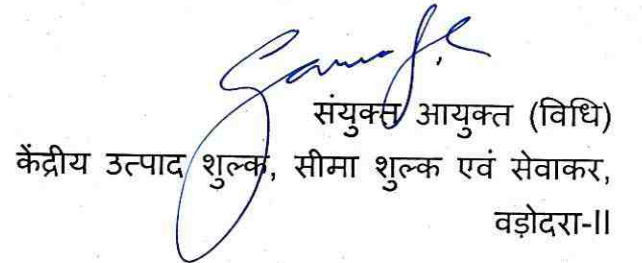 संयुक्त आयुक्त (विधि)
केंद्रीय उत्पाद शुल्क, सीमा शुल्क एवं सेवाकर,
वड़ोदरा-II